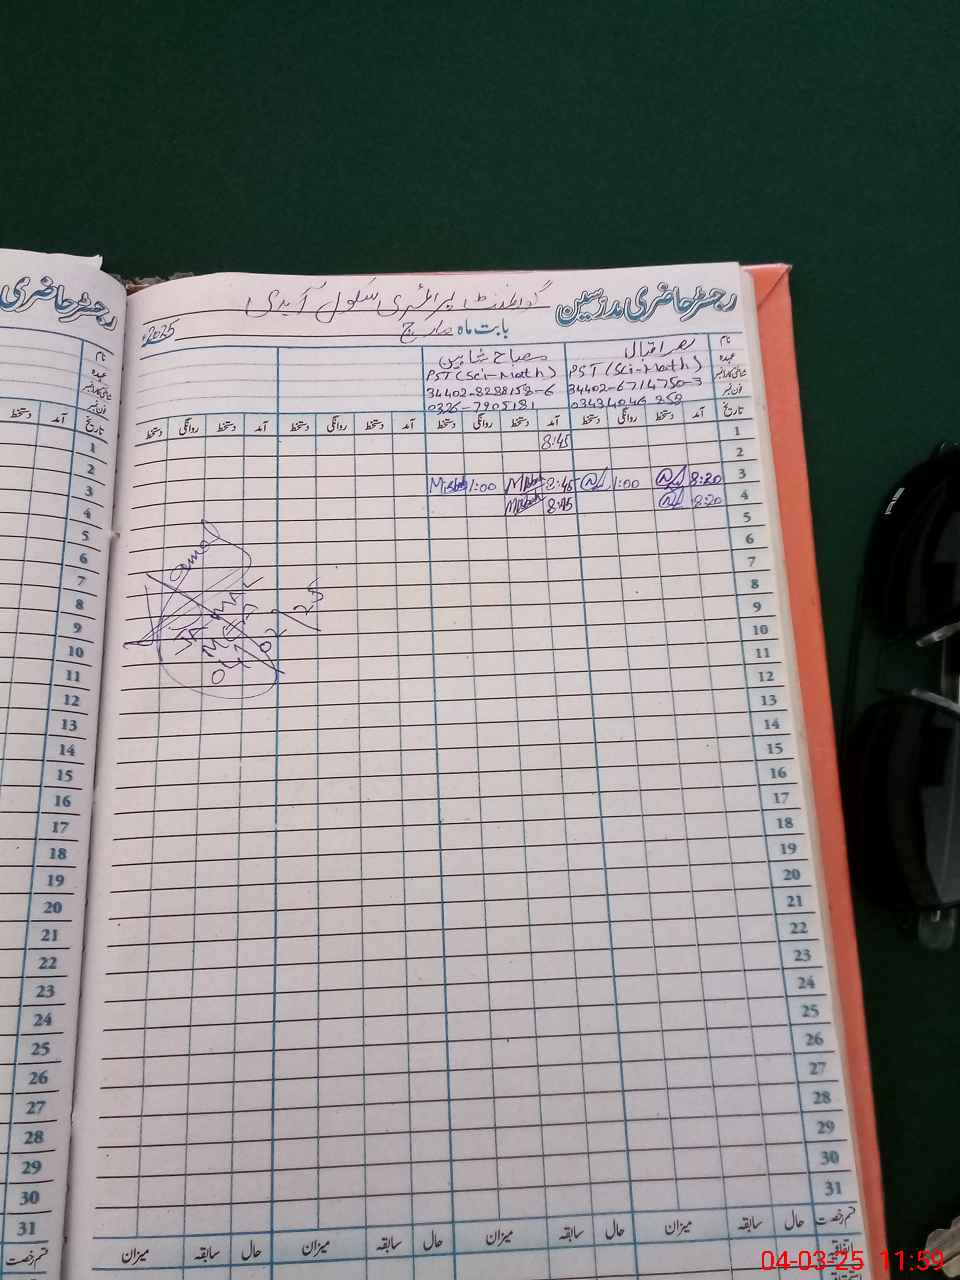 رجسٹر حاضری مدرسین
گورنمنٹ پرائمری سکول آہدی
بابت ماہ مارچ 2025ء
رجسٹر حاضری
نام
عہدہ
شناختی کارڈ نمبر
فون نمبر
تاریخ
مصباح شاہین
PST (Sci-Math)
34402-8288158-6
0326-7905181
اقبال
PST (Sci-Math)
34402-6714750-3
03434046 858
آمد دستخط روانگی دستخط آمد دستخط روانگی دستخط آمد دستخط روانگی دستخط آمد دستخط روانگی دستخط
1 8:45
2
3 8:20 1:00 8:45 Misbah 1:00 Misbah
4 8:20 8:45 Misbah
5
6
7
8
9
10
11
12
13
14
15
16
17
18
19
20
21
22
23
24
25
26
27
28
29
30
31
قسم رخصت حال سابقہ میزان حال سابقہ میزان حال سابقہ میزان حال سابقہ میزان
اتفاقیہ
نام
عہدہ
شناختی کارڈ نمبر
فون نمبر
تاریخ آمد دستخط
1
2
3
4
5
6
7
8
9
10
11
12
13
14
15
16
17
18
19
20
21
22
23
24
25
26
27
28
29
30
31
قسم رخصت
04-03-25 11:59